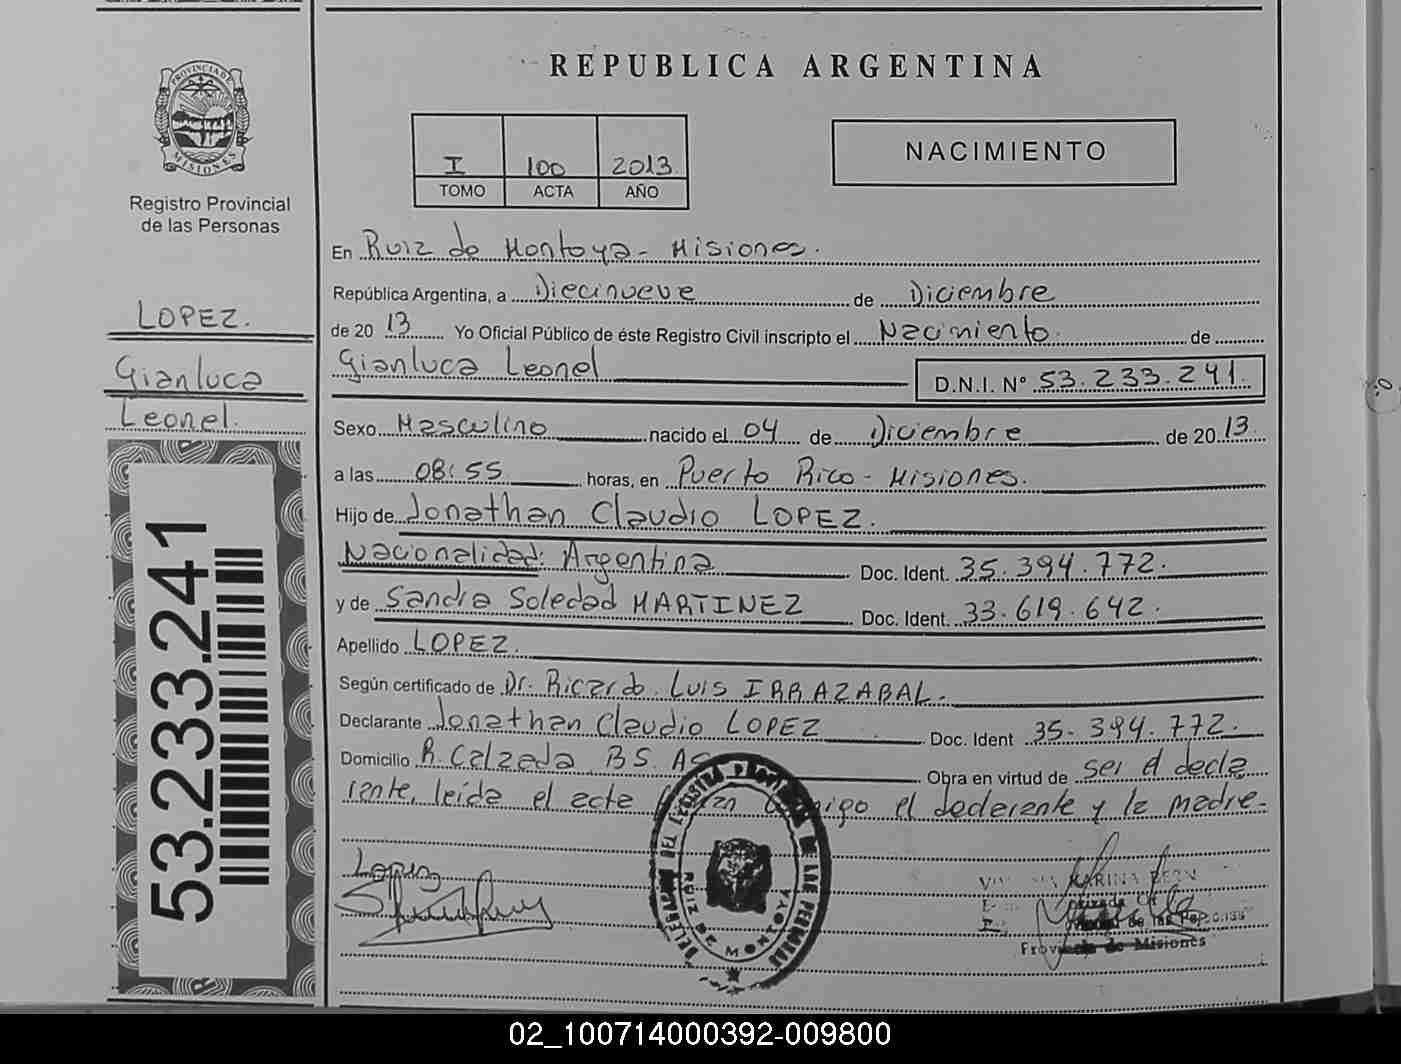 PROVINCIA DE
MISIONES
Registro Provincial
de las Personas
LOPEZ.
Gianluca
Leonel.
53.233.241
REPUBLICA ARGENTINA
I 100 2013
TOMO ACTA AÑO
NACIMIENTO
En Ruiz de Montoya - Misiones.
República Argentina, a Diecinueve de Diciembre
de 20 13 Yo Oficial Público de éste Registro Civil inscripto el Nacimiento. de
Gianluca Leonel D.N.I. N° 53.233.241.
Sexo Masculino nacido el 04 de Diciembre de 20 13.
a las 08:55 horas, en Puerto Rico - Misiones.
Hijo de Jonathan Claudio LOPEZ.
Nacionalidad: Argentina Doc. Ident. 35.394.772.
y de Sandra Soledad MARTINEZ Doc. Ident. 33.619.642.
Apellido LOPEZ.
Según certificado de Dr. Ricardo Luis IRRAZABAL.
Declarante Jonathan Claudio LOPEZ Doc. Ident 35.394.772.
Domicilio R. Calzada BS. AS Obra en virtud de ser el decla
rante, leída el acta conmigo el declarante y la madre.-
Lopez
RUIZ DE MONTOYA
MARINA
de las Personas
Provincia de Misiones
02_100714000392-009800